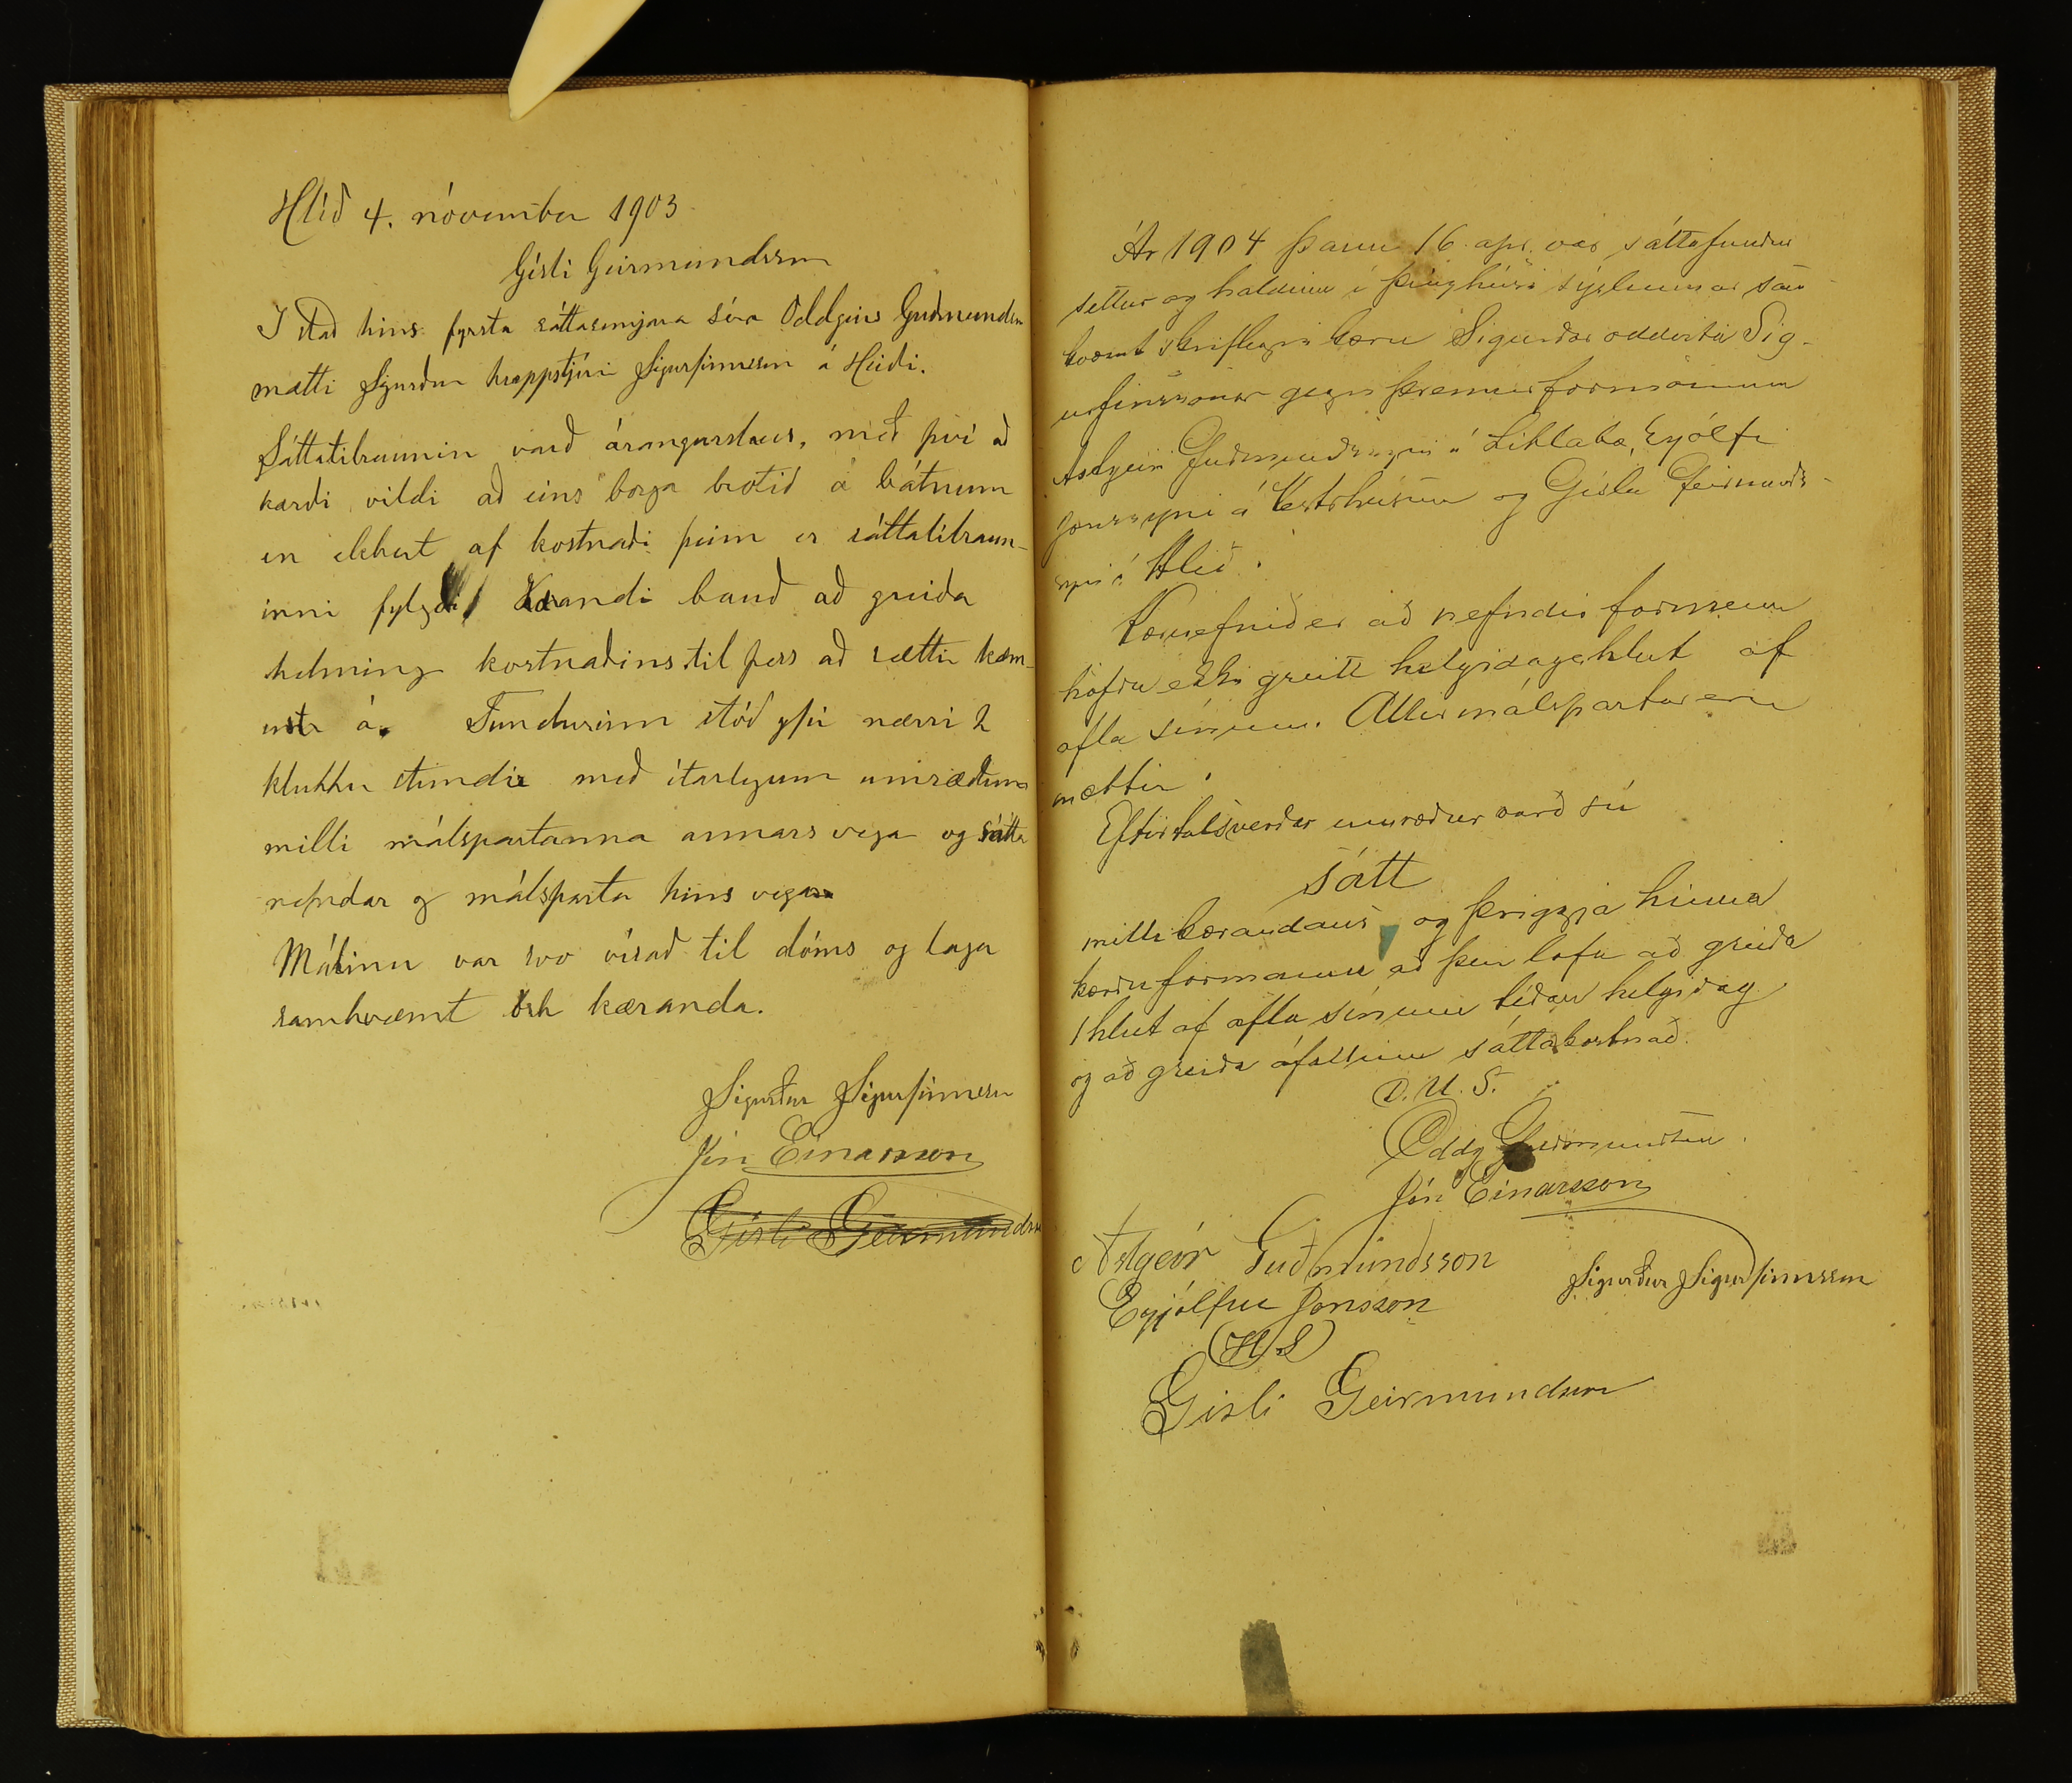 Hlíð 4. nóvember 1903
Gísli Geirmundsson
I stað hins fyrsta sáttasemjara séra Oddgeirs Guðmundsen
mætti Sigurður hreppstjóri Sigurfinnsson á Heiði.
Sáttatilraunin varð árangurslaus, með því að
kærði vildi að eins borga brotið á bátnum
en ekkert af kostnaði þeim er sáttatilraun-
inni fylgdi. Kærandi bauð að greiða
helming kostnaðins til þess að sættir kæm-
ust á. Fundurinn stóð yfir nærri 2
klukku stundir með ítarlegum umræðum
milli málspartanna annars vegar og sátta
nefndar og málsparta hins vegar
Málinu var svo vísað til dóms og laga
samkvæmt ósk kæranda.
Sigurður Sigurfinnsson
Jón Einarsson
Gísli Geirmundsson
Ár 1904 þann 16. apr. var sáttafundur
settur og haldinn í þinghúsi sýslunnar sam-
kvæmt skriflegri kæru Sigurðar oddvita Sig-
urfinssonar gegn þremur formönnum
Astgeiri Guðmundssyni á Litlabæ, Eyólfi
Jónssyni á Vestrhúsum og Gísla Geirmunds-
syni á Hlíð.
Kæruefnið er að nefndir formenn
höfðu ekki greitt helgidagshlut af
afla sínum. Allir málspartar eru
mættir
Eftir talsverðar umræður varð sú
sátt
milli kærandans og þriggja hinna
kærðu formanna að þeir lofa að greiða
1 hlut af afla sínum síðan helgidag
og að greiða áfallinn sáttakostnað.
D. U. S.
Oddg Guðmundsen.
Jón Einarsson
Astgeir Guðmundsson
Sigurður Sigurfinnsson
Eyjólfur Jónsson
(H S)
Gisli Geirmundsson